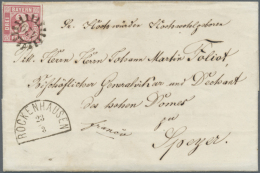 BAYERN
Sr. Hochwürden Hochwohlgeboren
Herrn Herrn Johann Martin Foliot,
Bischöflicher Generalvikar und Dechant
des hohen Domes
zu
Franco
Speyer.
ROCKENHAUSEN
23
3